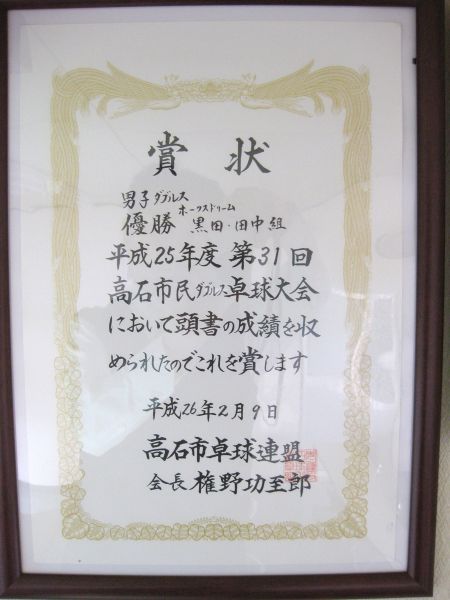 賞状
男子ダブルス
ホークスドリーム
優勝 黒田・田中組
平成25年度 第31回
高石市民ダブルス卓球大会
において頭書の成績を収
められたのでこれを賞します
平成26年2月9日
高石市卓球連盟
会長 権野功至郎